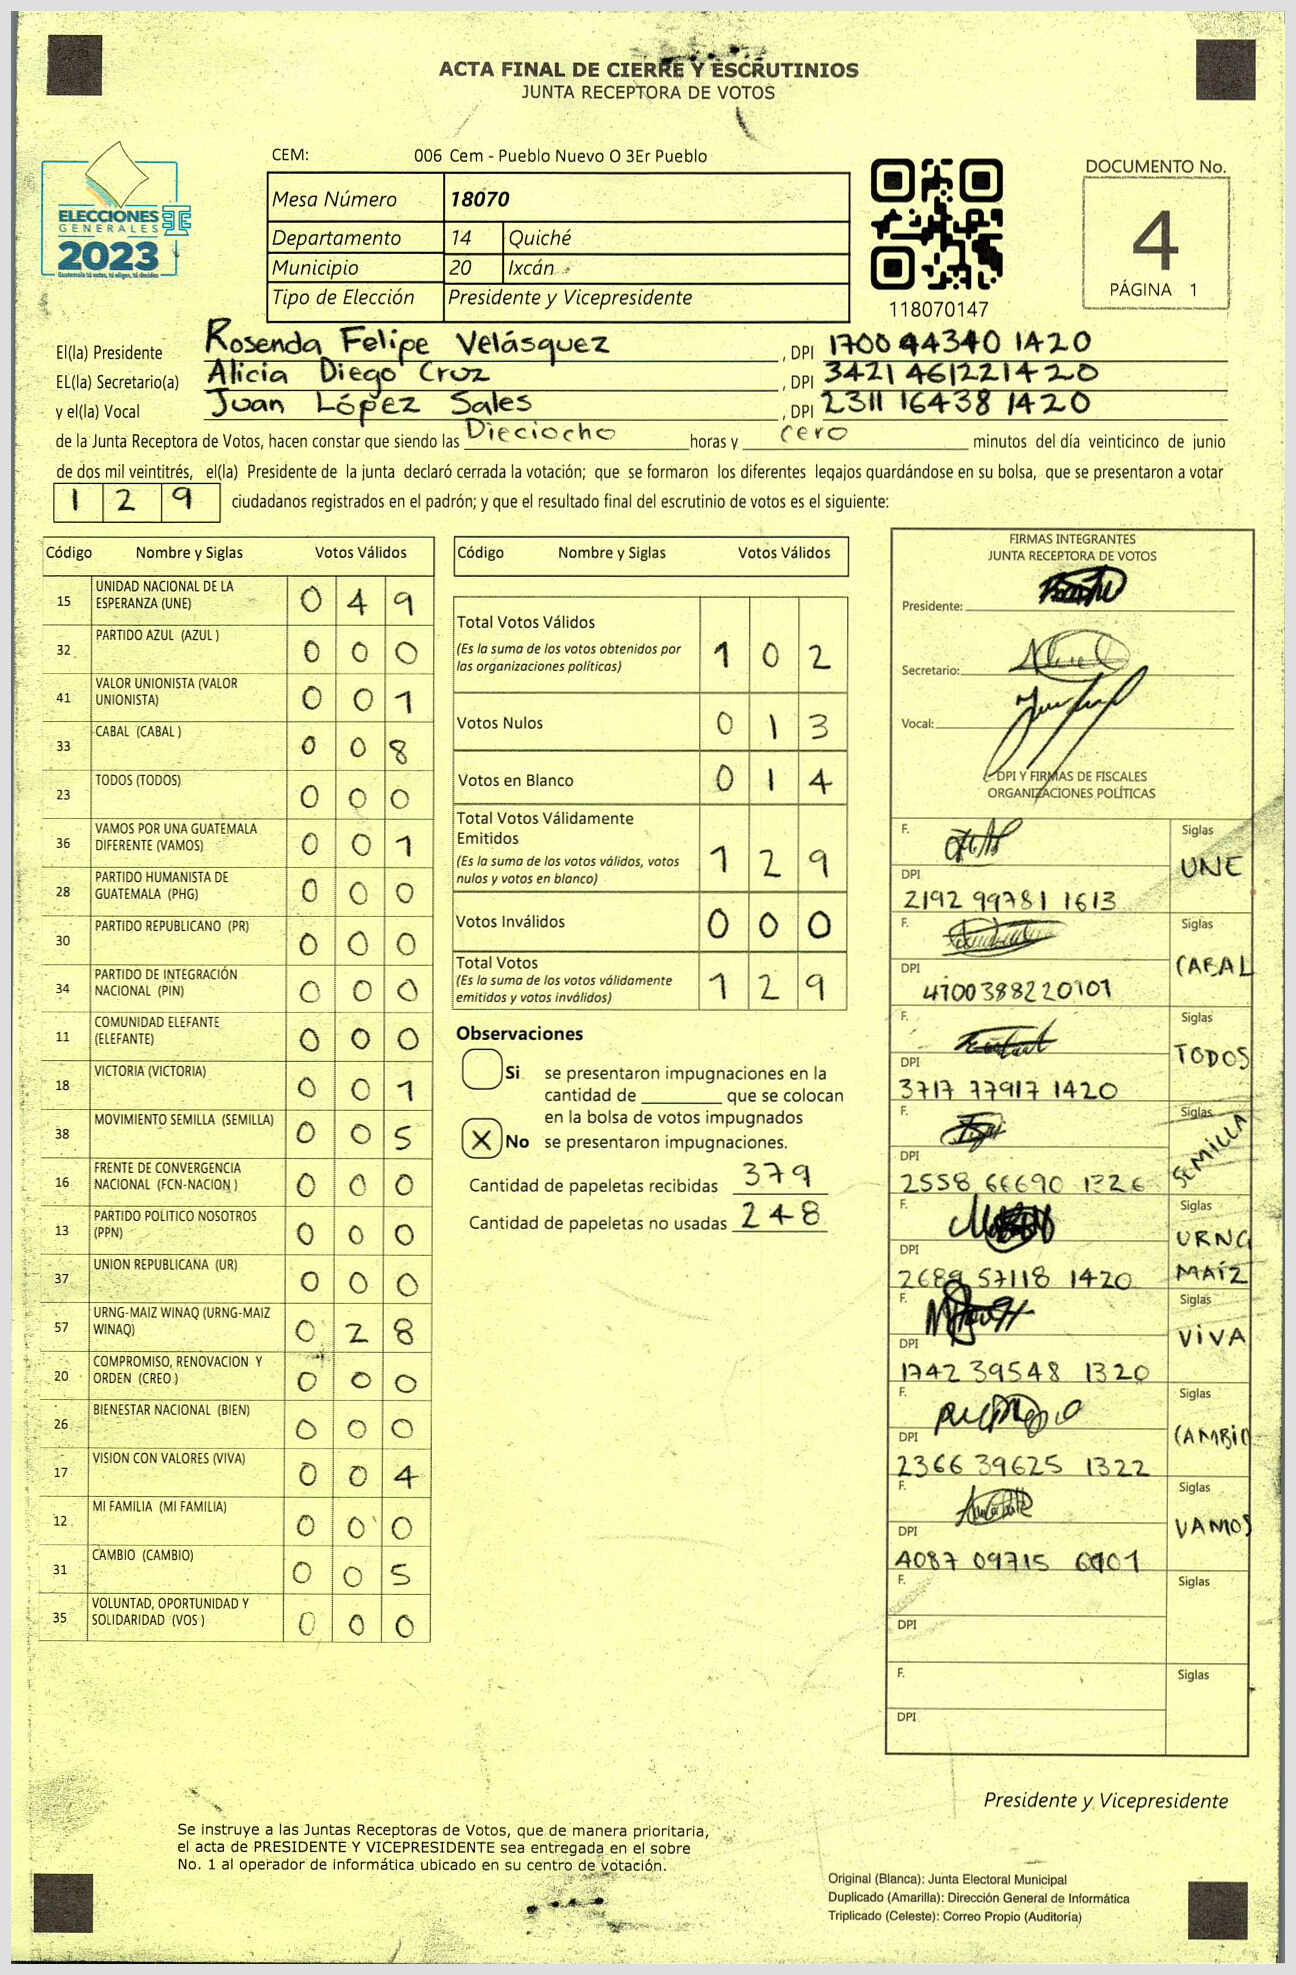 ACTA FINAL DE CIERRE Y ESCRUTINIOS
JUNTA RECEPTORA DE VOTOS
CEM: 006 Cem - Pueblo Nuevo O 3Er Pueblo
Mesa Número 18070
Departamento 14 Quiché
Municipio 20 Ixcán
Tipo de Elección Presidente y Vicepresidente
ELECCIONES
GENERALES
2023
Guatemala tú votas, tú eliges, tú decides
118070147
DOCUMENTO No.
4
PÁGINA 1
El(la) Presidente Rosenda Felipe Velásquez , DPI 1700 44340 1420
EL(la) Secretario(a) Alicia Diego Cruz , DPI 3421 46122 1420
y el(la) Vocal Juan López Sales , DPI 2311 16438 1420
de la Junta Receptora de Votos, hacen constar que siendo las Dieciocho horas y cero minutos del día veinticinco de junio
de dos mil veintitrés, el(la) Presidente de la junta declaró cerrada la votación; que se formaron los diferentes legajos guardándose en su bolsa, que se presentaron a votar
1 2 9 ciudadanos registrados en el padrón; y que el resultado final del escrutinio de votos es el siguiente:
Código Nombre y Siglas Votos Válidos
15 UNIDAD NACIONAL DE LA ESPERANZA (UNE) 0 4 9
32 PARTIDO AZUL (AZUL ) 0 0 0
41 VALOR UNIONISTA (VALOR UNIONISTA) 0 0 1
33 CABAL (CABAL ) 0 0 8
23 TODOS (TODOS) 0 0 0
36 VAMOS POR UNA GUATEMALA DIFERENTE (VAMOS) 0 0 1
28 PARTIDO HUMANISTA DE GUATEMALA (PHG) 0 0 0
30 PARTIDO REPUBLICANO (PR) 0 0 0
34 PARTIDO DE INTEGRACIÓN NACIONAL (PIN) 0 0 0
11 COMUNIDAD ELEFANTE (ELEFANTE) 0 0 0
18 VICTORIA (VICTORIA) 0 0 1
38 MOVIMIENTO SEMILLA (SEMILLA) 0 0 5
16 FRENTE DE CONVERGENCIA NACIONAL (FCN-NACION ) 0 0 0
13 PARTIDO POLITICO NOSOTROS (PPN) 0 0 0
37 UNION REPUBLICANA (UR) 0 0 0
57 URNG-MAIZ WINAQ (URNG-MAIZ WINAQ) 0 2 8
20 COMPROMISO, RENOVACION Y ORDEN (CREO ) 0 0 0
26 BIENESTAR NACIONAL (BIEN) 0 0 0
17 VISION CON VALORES (VIVA) 0 0 4
12 MI FAMILIA (MI FAMILIA) 0 0 0
31 CAMBIO (CAMBIO) 0 0 5
35 VOLUNTAD, OPORTUNIDAD Y SOLIDARIDAD (VOS ) 0 0 0
Código Nombre y Siglas Votos Válidos
Total Votos Válidos 1 0 2
(Es la suma de los votos obtenidos por
las organizaciones políticas)
Votos Nulos 0 1 3
Votos en Blanco 0 1 4
Total Votos Válidamente
Emitidos 1 2 9
(Es la suma de los votos válidos, votos
nulos y votos en blanco)
Votos Inválidos 0 0 0
Total Votos 1 2 9
(Es la suma de los votos válidamente
emitidos y votos inválidos)
Observaciones
Si se presentaron impugnaciones en la
cantidad de ________ que se colocan
en la bolsa de votos impugnados
X No se presentaron impugnaciones.
Cantidad de papeletas recibidas 379
Cantidad de papeletas no usadas 248
FIRMAS INTEGRANTES
JUNTA RECEPTORA DE VOTOS
Presidente:
Secretario:
Vocal:
DPI Y FIRMAS DE FISCALES
ORGANIZACIONES POLÍTICAS
F. Siglas UNE
DPI 2192 99781 1613
F. Siglas CABAL
DPI 4100388220101
F. Siglas TODOS
DPI 3717 77917 1420
F. Siglas SEMILLA
DPI 2558 66690 1326
F. Siglas URNG MAÍZ
DPI 2689 57118 1420
F. Siglas VIVA
DPI 1742 39548 1320
F. Siglas CAMBIO
DPI 2366 39625 1322
F. Siglas VAMOS
DPI 4087 09715
F. Siglas
DPI
F. Siglas
DPI
Presidente y Vicepresidente
Se instruye a las Juntas Receptoras de Votos, que de manera prioritaria,
el acta de PRESIDENTE Y VICEPRESIDENTE sea entregada en el sobre
No. 1 al operador de informática ubicado en su centro de votación.
Original (Blanca): Junta Electoral Municipal
Duplicado (Amarilla): Dirección General de Informática
Triplicado (Celeste): Correo Propio (Auditoría)